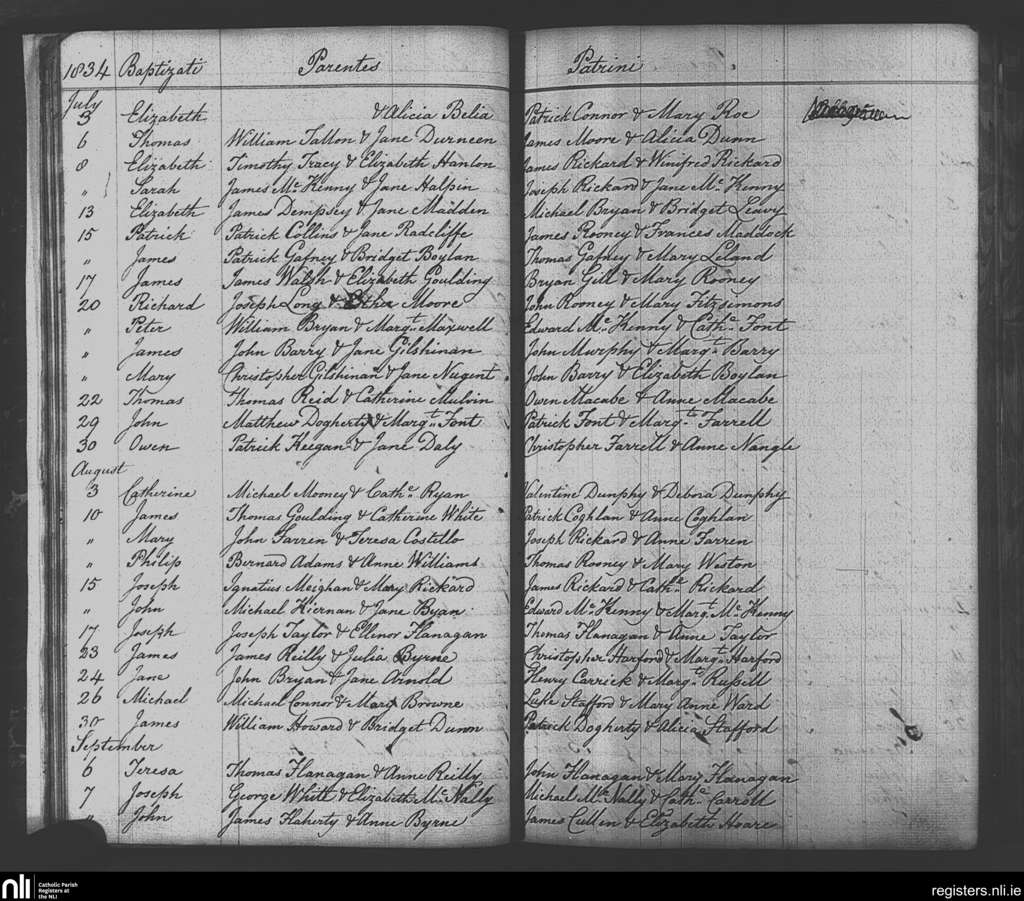 1834 Baptizati Parentes Patrini
July
3 Elizabeth & Alicia Belia Patrick Connor & Mary Roe
6 Thomas William Tallon & Jane Durneen James Moore & Alicia Dunn
8 Elizabeth Timothy Tracy & Elizabeth Hanlon James Rickard & Winifred Rickard
" Sarah James Mc. Kenny & Jane Halpin Joseph Rickard & Jane Mc. Kenny
13 Elizabeth James Dempsey & Jane Madden Michael Bryan & Bridget Leavy
15 Patrick Patrick Collins & Jane Radcliffe James Rooney & Frances Maddock
" James Patrick Gafney & Bridget Boylan Thomas Gafney & Mary Leland
17 James James Walsh & Elizabeth Goulding Bryan Gill & Mary Rooney
20 Richard Joseph Long & Moore John Rooney & Mary Fitzsimons
" Peter William Bryan & Margt. Maxwell Edward Mc. Kenny & Cathe. Font
" James John Barry & Jane Gilshinan John Murphy & Margt. Barry
" Mary Christopher Gilshinan & Jane Nugent John Barry & Elizabeth Boylan
22 Thomas Thomas Reid & Catherine Mulvin Owen Macabe & Anne Macabe
29 John Matthew Dogherty & Margt. Font Patrick Font & Margt. Farrell
30 Owen Patrick Keegan & Jane Daly Christopher Farrell & Anne Nangle
August
3 Catherine Michael Mooney & Cathe. Ryan Valentine Dunphy & Debora Dunphy
10 James Thomas Goulding & Catherine White Patrick Coghlan & Anne Coghlan
" Mary John Farren & Teresa Costello Joseph Rickard & Anne Farren
" Philip Bernard Adams & Anne Williams Thomas Rooney & Mary Weston
15 Joseph Ignatius Meighan & Mary Rickard James Rickard & Cathe. Rickard
" John Michael Kiernan & Jane Byan Edward Mc. Kenny & Margt. Mc. Kenny
17 Joseph Joseph Taylor & Ellenor Flanagan Thomas Flanagan & Anne Taylor
23 James James Reilly & Julia Byrne Christopher Harford & Margt. Harford
24 Jane John Bryan & Jane Arnold Henry Carrick & Margt. Russell
26 Michael Michael Connor & Mary Browne Luke Stafford & Mary Anne Ward
30 James William Howard & Bridget Dunn Patrick Dogherty & Alicia Stafford
September
6 Teresa Thomas Flanagan & Anne Reilly John Flanagan & Mary Flanagan
7 Joseph George Whitt & Elizabeth Mc. Nally Michael Mc. Nally & Cathe. Carroll
" John James Flaherty & Anne Byrne James Cullen & Elizabeth Hoare
nli Catholic Parish
Registers at
the NLI
registers.nli.ie